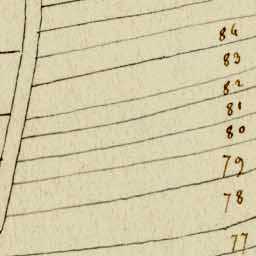 84
83
82
81
80
79
78
77